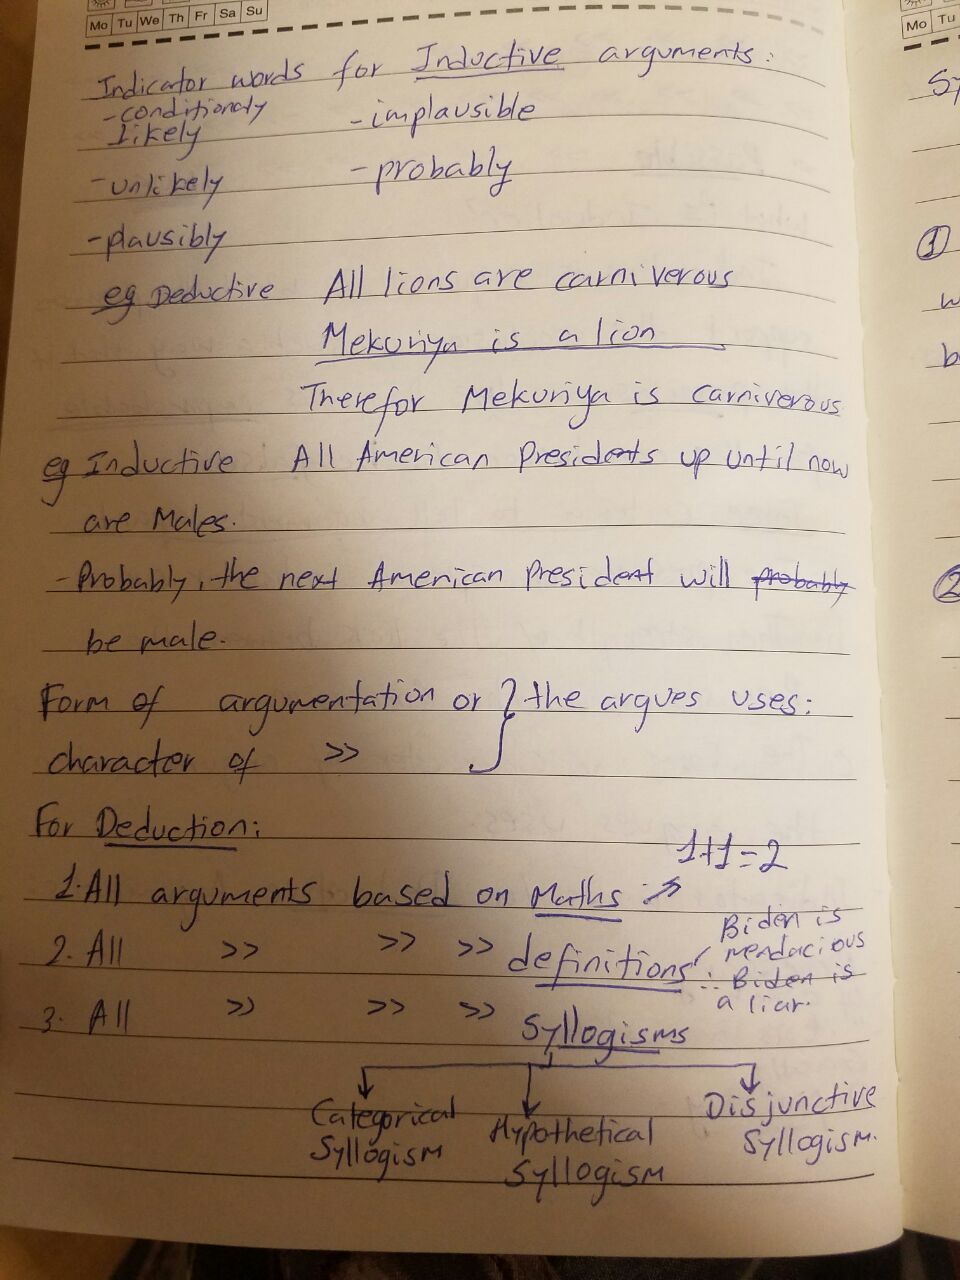 Mo Tu We Th Fr Sa Su
Mo Tu
Indicator words for Inductive arguments:
-conditionaly -implausible
likely
-unlikely -probably
-plausibly
eg Deductive All lions are carniverous
Mekuriya is a lion
Therefor Mekuriya is carniverous
eg Inductive All American Presidents up until now
are Males.
-Probably, the next American President will probably
be male.
Form of argumentation or } the argues uses:
character of >>
For Deduction:
1+1=2
1. All arguments based on Maths :→
Biden is
2. All >> >> >> definitions mendacious
∴ Biden is
a liar.
3. All >> >> >> Syllogisms
Categorical Hypothetical Disjunctive
Syllogism Syllogism Syllogism.
Sy
1
w
b
2